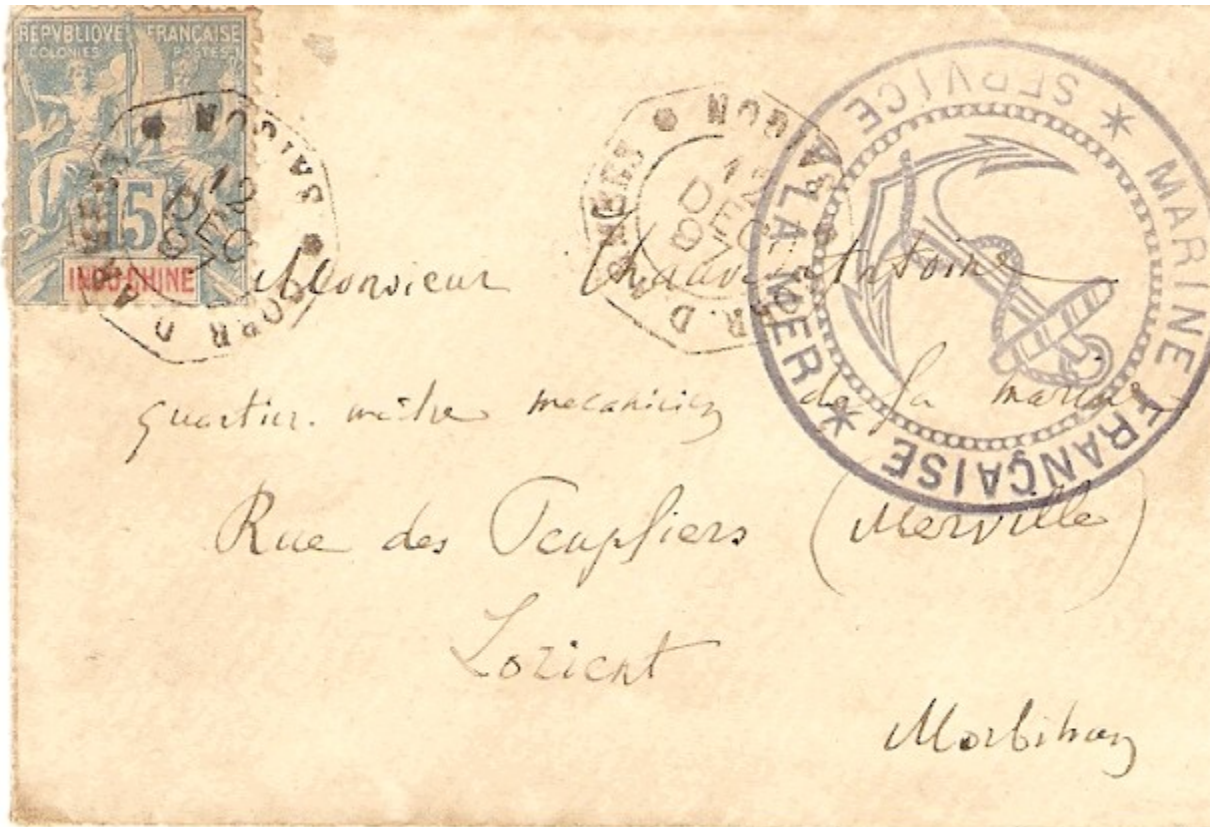 REPVBLIQVE FRANÇAISE
COLONIES POSTES
15
INDO-CHINE
CORR. D ARMEES * SAIGON *
12
DEC
CORR. D ARMEES * SAIGON *
12
DEC
* MARINE FRANÇAISE *
SERVICE A LA MER
Monsieur Chauve Antoine
quartier-maître mecanicien de la marine
Rue des Peupliers (Merville)
Lorient
Morbihan